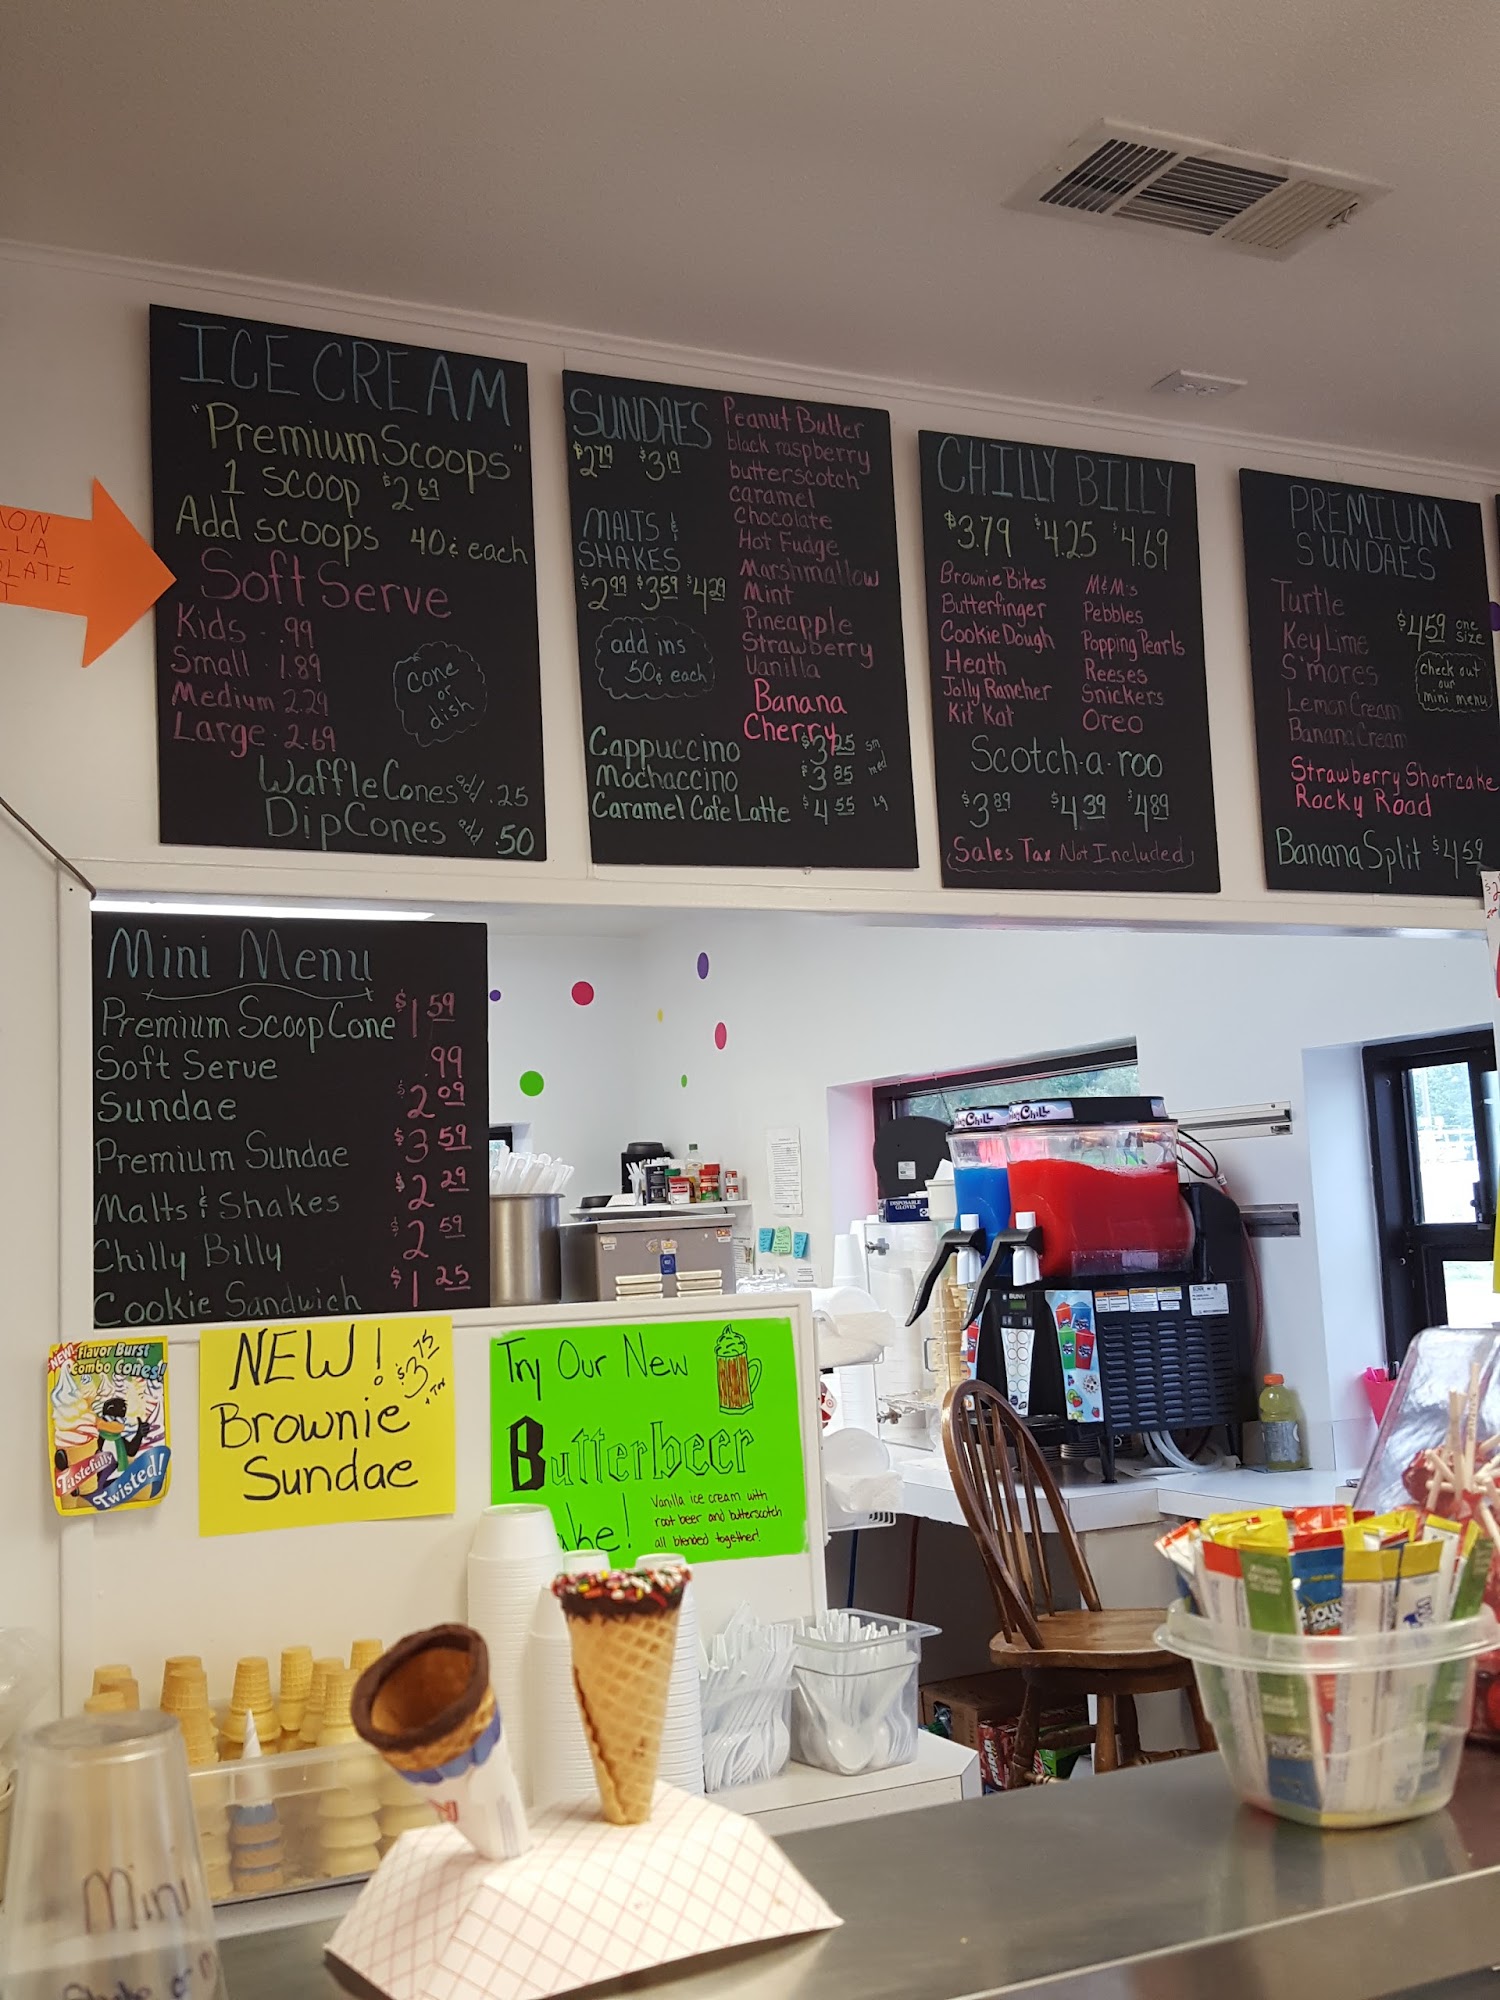 ICE CREAM
"Premium Scoops"
1 scoop $2.69
Add scoops 40¢ each
Soft Serve
Kids .99
Small 1.89
Medium 2.29
Large 2.69
cone
or
dish
Waffle Cones add .25
Dip Cones add .50
SUNDAES
$2.79 $3.19
MALTS &
SHAKES
$2.99 $3.59 $4.29
add ins
50¢ each
Peanut Butter
black raspberry
butterscotch
caramel
Chocolate
Hot Fudge
Marshmallow
Mint
Pineapple
Strawberry
Vanilla
Banana
Cherry
Cappuccino $3.25 sm
Mochaccino $3.85 med
Caramel Cafe Latte $4.55 lg
CHILLY BILLY
$3.79 $4.25 $4.69
Brownie Bites
Butterfinger
Cookie Dough
Heath
Jolly Rancher
Kit Kat
M&M's
Pebbles
Popping Pearls
Reeses
Snickers
Oreo
Scotch-a-roo
$3.89 $4.39 $4.89
(Sales Tax Not Included)
PREMIUM
SUNDAES
Turtle
Key Lime
S'mores
Lemon Cream
Banana Cream
Strawberry Shortcake
Rocky Road
$4.59 one
size
Check out
our
mini menu
Banana Split $4.59
Mini Menu
Premium Scoop Cone $1.59
Soft Serve .99
Sundae $2.09
Premium Sundae $3.59
Malts & Shakes $2.29
Chilly Billy $2.59
Cookie Sandwich $1.25
NEW! Flavor Burst
Combo Cones!
Tastefully
Twisted!
NEW! $3.75
+ Tax
Brownie
Sundae
Try Our New
Butterbeer
ake!
Vanilla ice cream with
root beer and butterscotch
all blended together!
DISPOSABLE
GLOVES
CHILL
Mini
Shake or